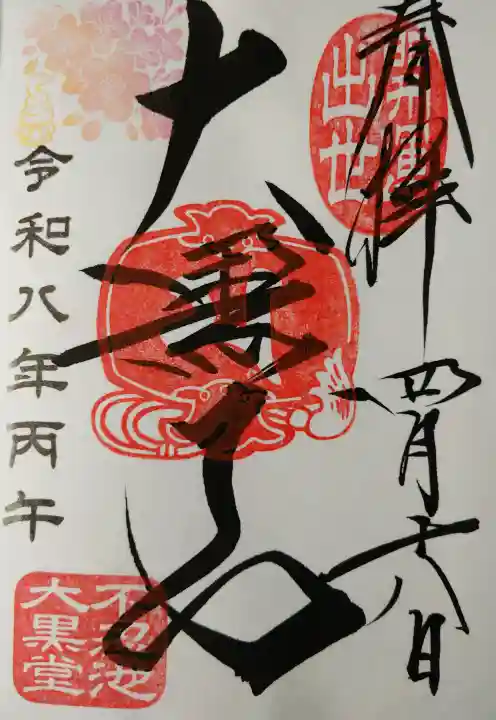 奉拝
四月十八日
開運
出世
令和八年丙午
不忍池
大黒堂